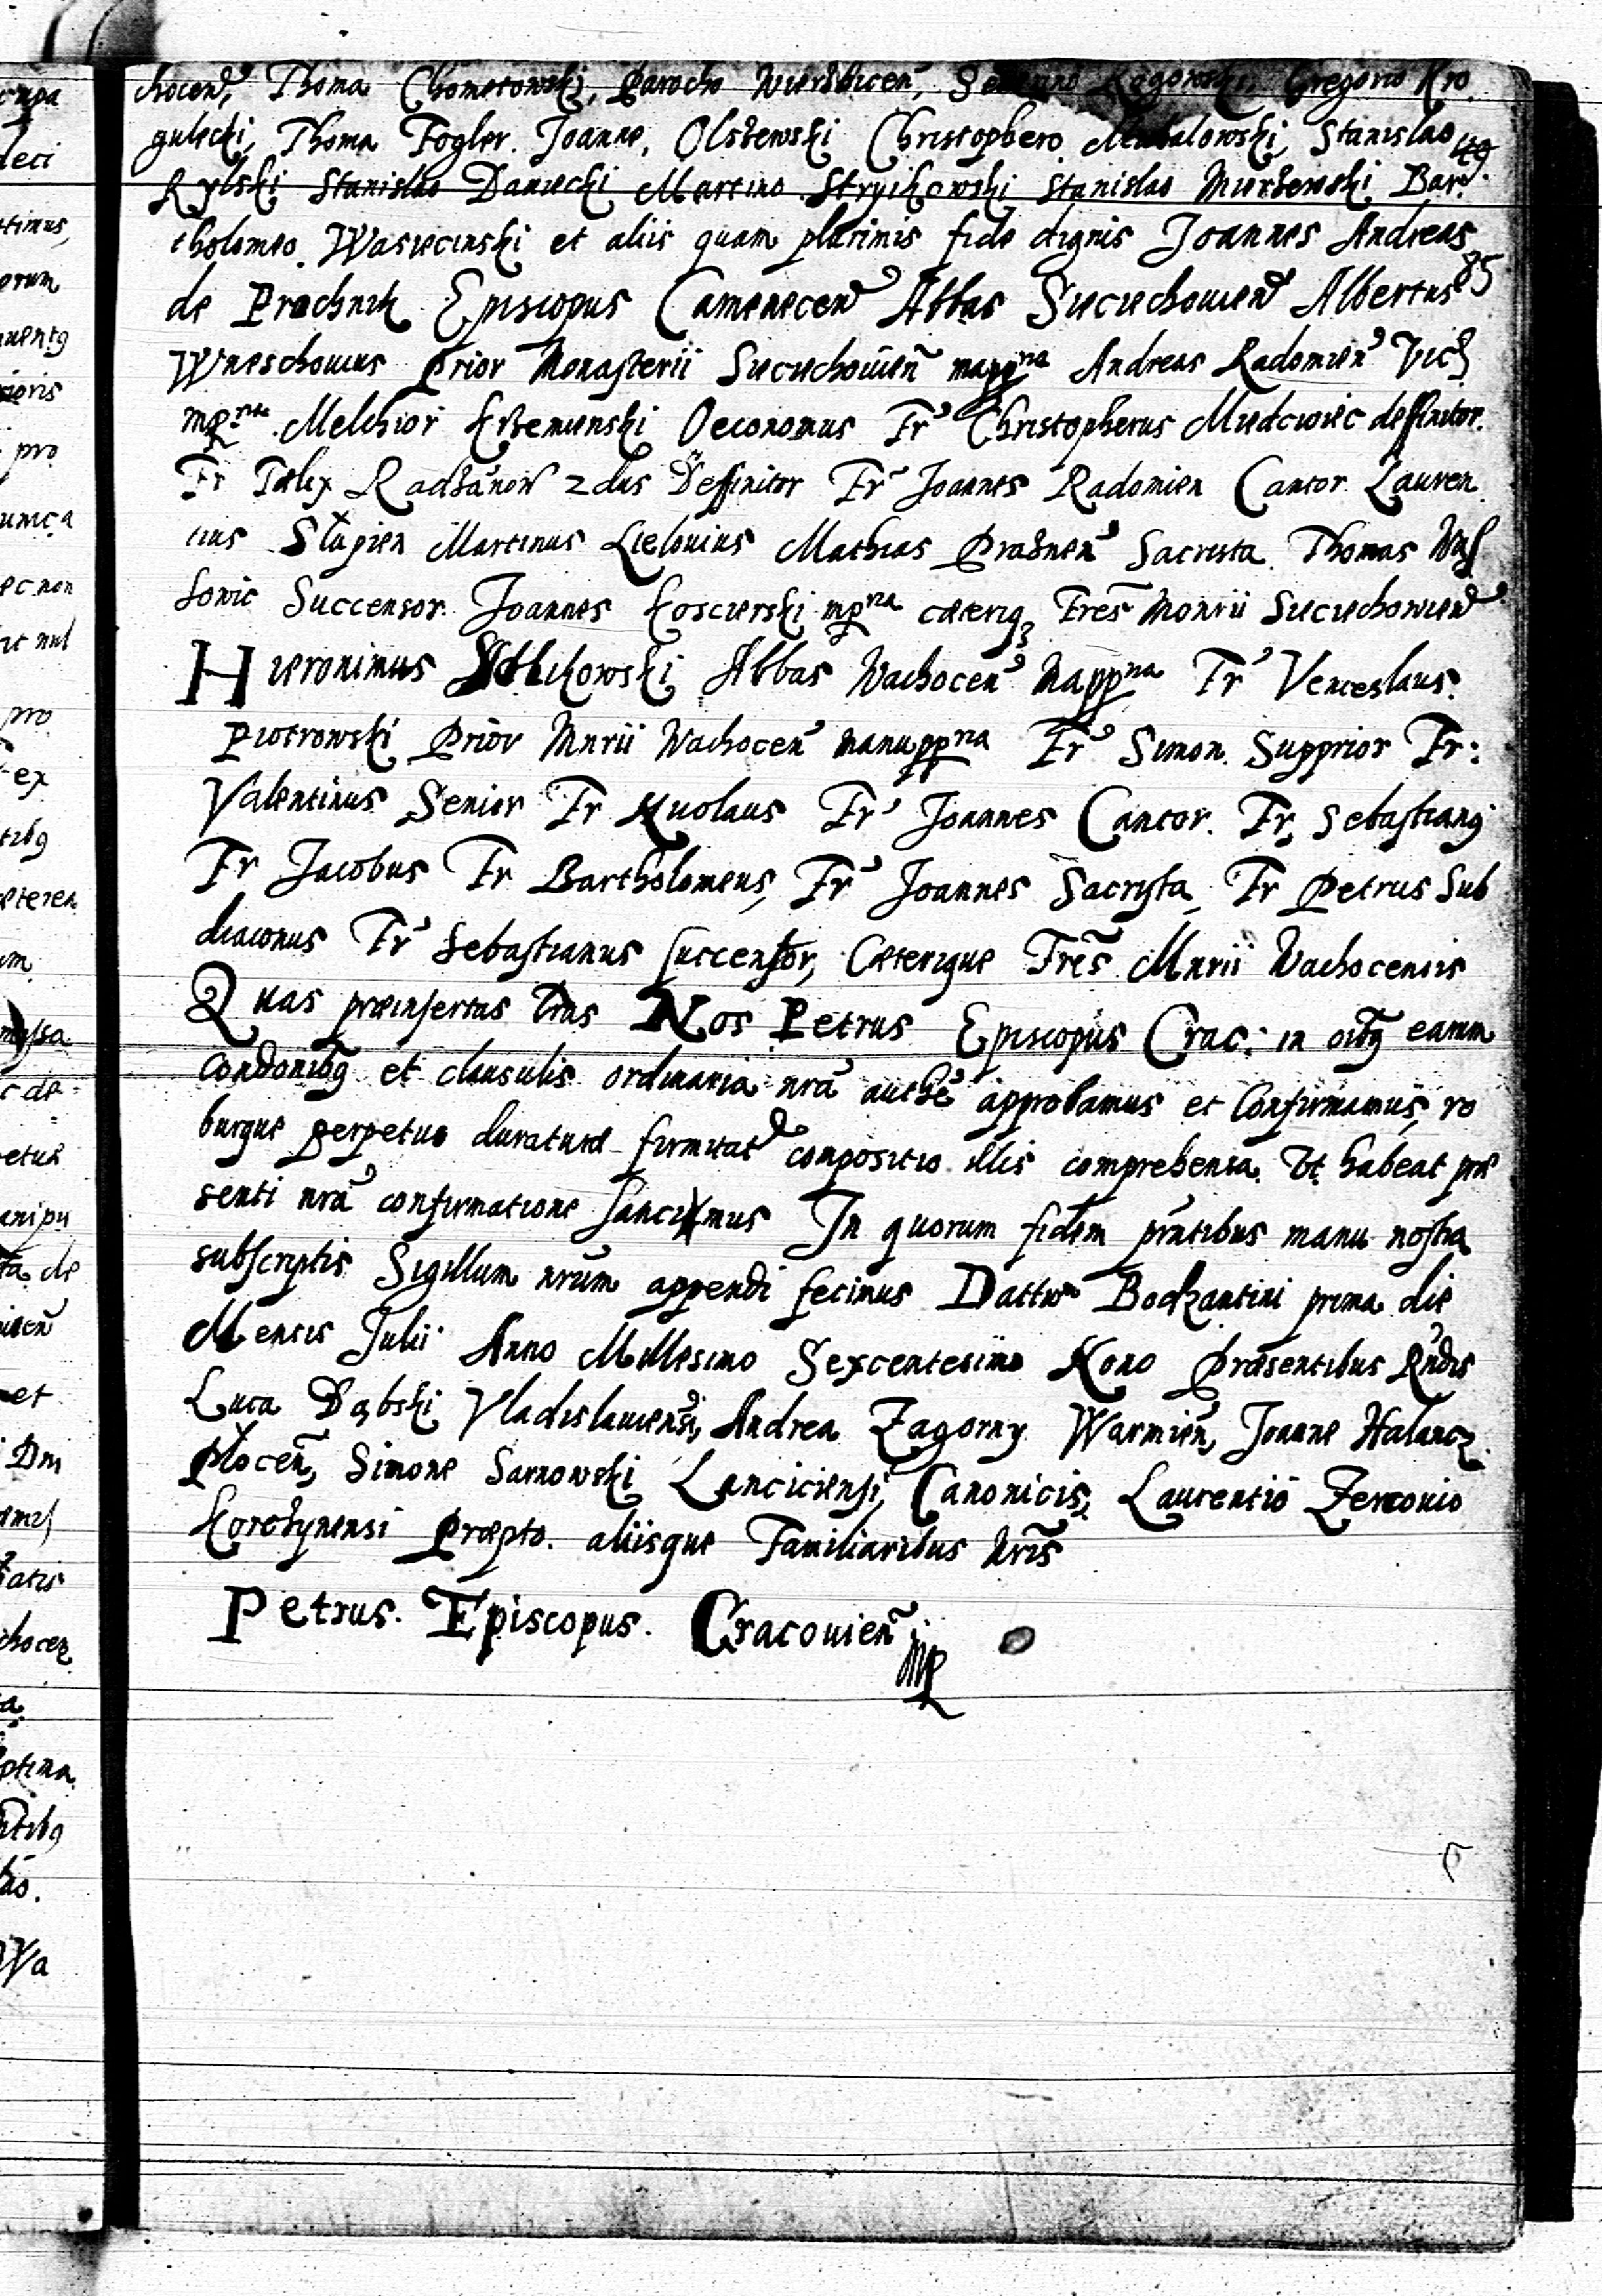 chocen, Thoma Chometowski, Parocho Wierzbicen, Rogowski, Gregorio Kro
gulecki, Thoma Fogler. Joanne, Olszewski Christophero Michalowski, Stanislao
49.
Rylski Stanislao Daniecki Martino Stryikowski Stanislao Mierzewski Bar
tholomeo Wasiecinski et aliis quam plurimis fide dignis Joannes Andreas
85
de Prochnik Episcopus Camenecen Abbas Sieciechovien Albertus
Wneschovius Prior Monasterii Sieciechovien mappria Andreas Radomien Vic
mpria Melchior Krzemienski Oeconomus Fr Christopherus Miedcwiec deffinitor.
Fr Felix Radzanow 2dus Deffinitor Fr Joannes Radomien Cantor Lauren
tius Slupien Martinus Lielovius Mathias Praznen Sacrista Thomas Was
sowic Succensor Joannes Koscierski mpria caeteriq3 Fres Monrii Sieciechowien
Hieronimus Abbas Wachocen Mappria Fr Venceslaus.
Piotrowski Prior Mnrii Wachocen manuppria Fr Simon Supprior Fr:
Valentinus Senior Fr Nicolaus Fr Joannes Cantor. Fr Sebastiang
Fr Jacobus Fr Bartholomeus, Fr Joannes Sacrista, Fr Petrus Sub
diaconus Fr Sebastianus succentor, Caeterique Fres Mnrii Wachocensis
Quas praeinsertas lras Nos Petrus Episcopus Crac: in oibg earum
condonibg et clausulis ordinaria nra authe approbamus et Confirmamus, ro
burque perpetuo duraturae firmitat compositio illis comprehensa Ut habeat prae
senti nra confirmatione sancimus In quorum fidem prntibus manu nostra
subscriptis Sigillum nrum appendi fecimus Dattum Bodzantini prima die
Mensis Julii Anno Millesimo Sexcentesimo Nono Praesentibus Rndis
Luca Dąbski Vladislaviensi, Andrea Zagorny Warmien, Joanne Halancz
Plocen, Simone Sarnowski Lanciciensi, Canonicis, Laurentio Zerconio
Korczynensi Praepto. aliisque Familiaribus Nris
Petrus. Episcopus. Cracovien
mp